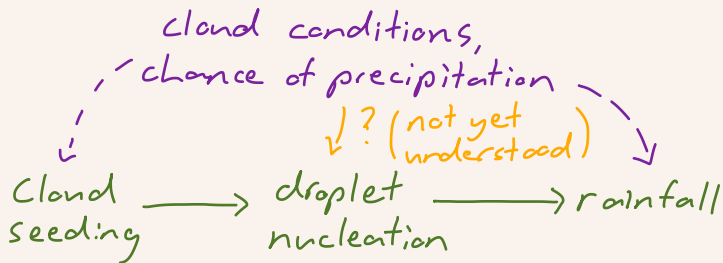 cloud conditions,
chance of precipitation
? (not yet
understood)
Cloud
seeding
droplet
nucleation
rainfall